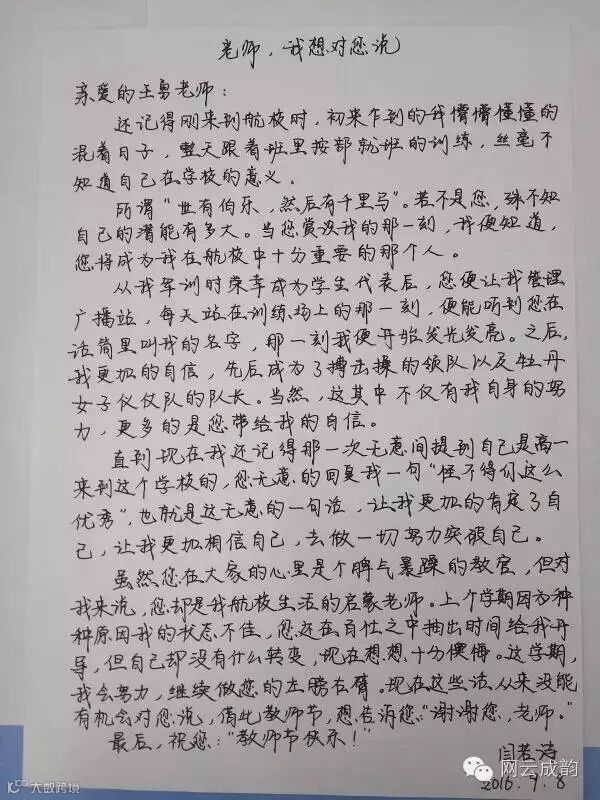 老师，我想对您说
亲爱的王勇老师：
还记得刚来到航校时，初来乍到的我懵懵懂懂的
混着日子，整天跟着班里按部就班的训练，丝毫不
知道自己在学校的意义。
所谓“世有伯乐，然后有千里马”。若不是您，殊不知
自己的潜能有多大。当您赏识我的那一刻，我便知道，
您将成为我在航校中十分重要的那个人。
从我军训时荣幸成为学生代表后，您便让我管理
广播站，每天站在训练场上的那一刻，便能听到您在
话筒里叫我的名字，那一刻我便开始发光发亮。之后，
我更加的自信，先后成为了搏击操的领队以及牡丹
女子仪仗队的队长。当然，这其中不仅有我自身的努
力，更多的是您带给我的自信。
直到现在我还记得那一次无意间提到自己是高一
来到这个学校的，您无意的回复我一句“怪不得你这么
优秀”，也就是这无意的一句话，让我更加的肯定了自
己，让我更加相信自己，去做一切努力突破自己。
虽然您在大家的心里是个脾气暴躁的教官，但对
我来说，您却是我航校生活的启蒙老师。上个学期因为种
种原因我的状态不佳，您还在百忙之中抽出时间给我开
导，但自己却没有什么转变，现在想想十分懊悔。这学期，
我会努力，继续做您的左膀右臂。现在这些话从来没能
有机会对您说，借此教师节，想告诉您：“谢谢您，老师。”
最后，祝您：“教师节快乐！”
闫若诗
2016.9.8
大数跨境
网云成韵